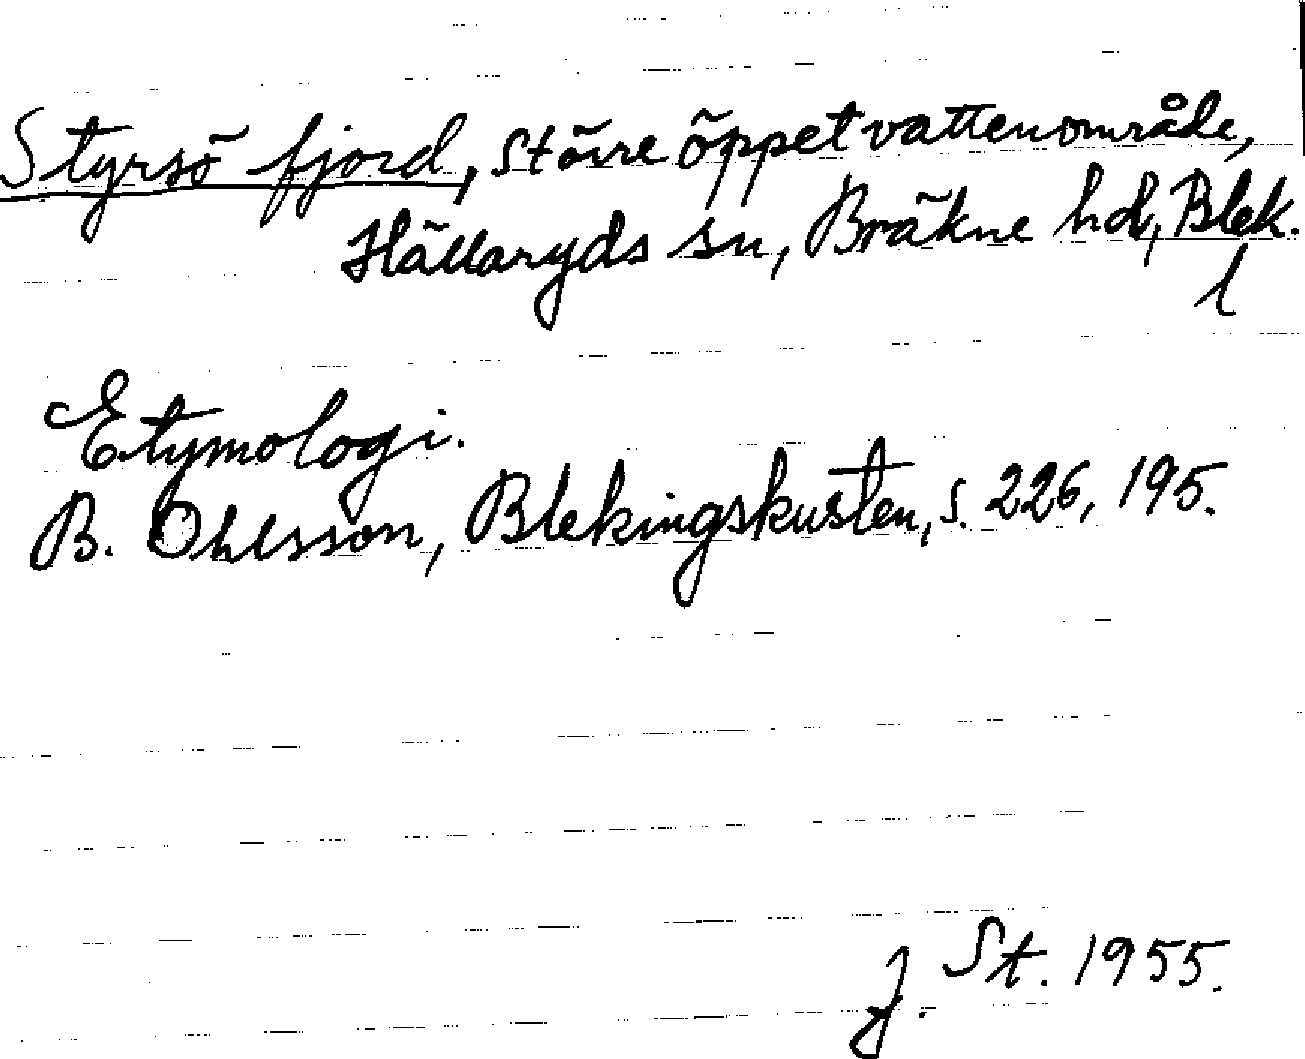 Styrsö fjord, större öppet vattenområde,
Hällaryds sn, Bräkne hd, Blek.
l
Etymologi.
B. Ohlsson, Blekingskusten, s. 226, 195.
J. St. 1955.